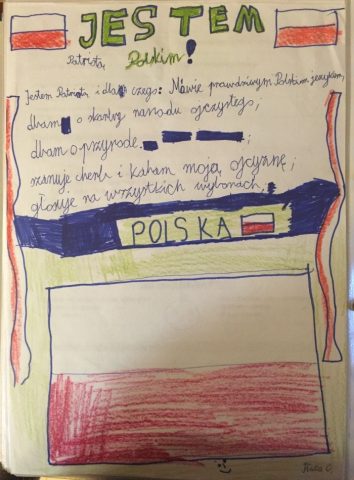 JESTEM
Patriotą Polskim!
Jestem Patriotą i dla czego: Mówie prawdziwym Polskim językiem,
dbam o skarby narodu ojczystego;
dbam o przyrode,
szanuje chleb i kaham moją ojcyznę;
głosuje na wszystkich wyborach.
POLSKA